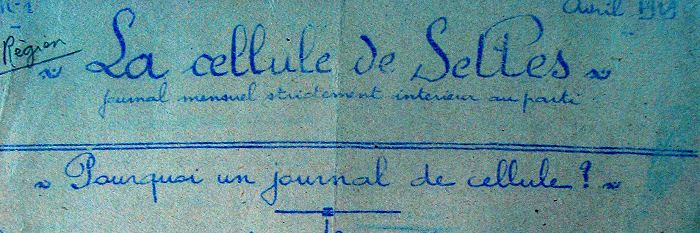 Avril
Région
La cellule de Seltes
journal mensuel strictement intérieur au parti
Pourquoi un journal de cellule ?